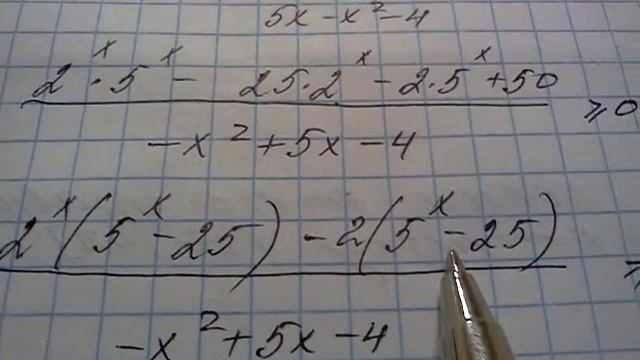 5x - x² - 4
2ˣ · 5ˣ - 25 · 2ˣ - 2 · 5ˣ + 50
≥ 0
-x² + 5x - 4
2ˣ(5ˣ - 25) - 2(5ˣ - 25)
-x² + 5x - 4